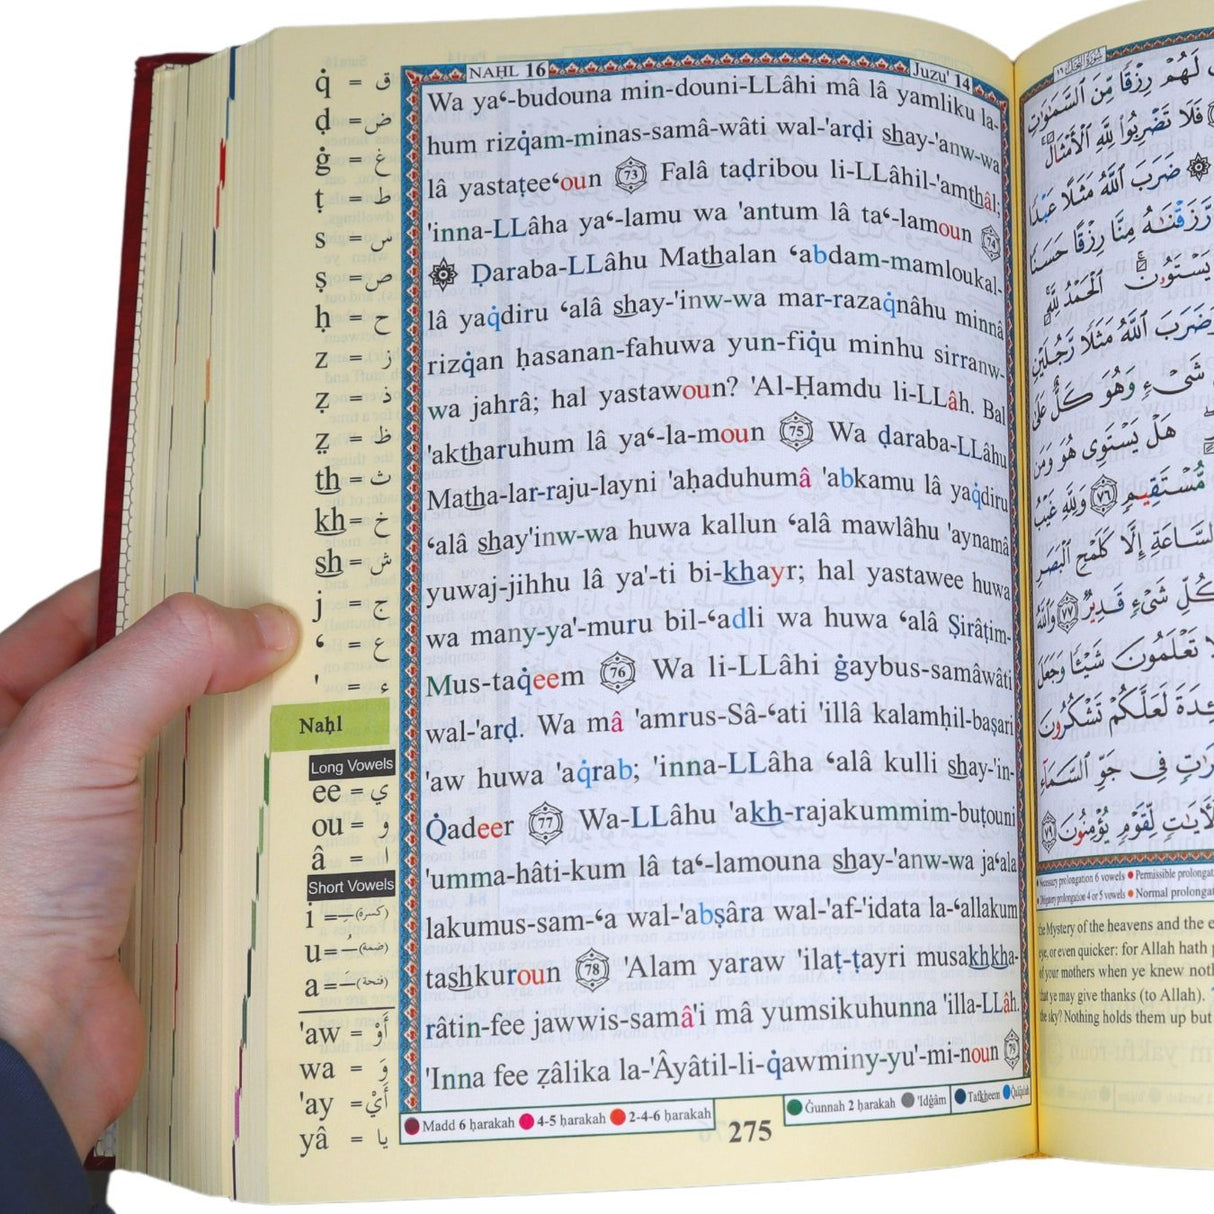 NAḤL 16
Juzu' 14
Wa ya‘-budouna min-douni-LLâhi mâ lâ yamliku la-
hum rizq̇am-minas-samâ-wâti wal-'arḍi shay-'anw-wa
lâ yastaṭee‘oun 73 Falâ taḍribou li-LLâhil-'amthâl;
'inna-LLâha ya‘-lamu wa 'antum lâ ta‘-lamoun 74
۞ Ḍaraba-LLâhu Mathalan ‘abdam-mamloukal-
lâ yaq̇diru ‘alâ shay-'inw-wa mar-razaq̇nâhu minnâ
rizq̇an ḥasanan-fahuwa yun-fiq̇u minhu sirranw-
wa jahrâ; hal yastawoun? 'Al-Ḥamdu li-LLâh. Bal
'aktharuhum lâ ya‘-la-moun 75 Wa ḍaraba-LLâhu
Matha-lar-raju-layni 'aḥaduhumâ 'abkamu lâ yaq̇diru
‘alâ shay'inw-wa huwa kallun ‘alâ mawlâhu 'aynamâ
yuwaj-jihhu lâ ya'-ti bi-khayr; hal yastawee huwa
wa many-ya'-muru bil-‘adli wa huwa ‘alâ Ṣirâṭim-
Mus-taq̇eem 76 Wa li-LLâhi ġaybus-samâwâti
wal-'arḍ. Wa mâ 'amrus-Sâ-‘ati 'illâ kalamḥil-baṣari
'aw huwa 'aq̇rab; 'inna-LLâha ‘alâ kulli shay-'in-
Q̇adeer 77 Wa-LLâhu 'akh-rajakummim-buṭouni
'umma-hâti-kum lâ ta‘-lamouna shay-'anw-wa ja‘ala
lakumus-sam-‘a wal-'abṣâra wal-'af-'idata la-‘allakum
tashkuroun 78 'Alam yaraw 'ilaṭ-ṭayri musakhkha-
râtin-fee jawwis-samâ'i mâ yumsikuhunna 'illa-LLâh.
'Inna fee ẓâlika la-'Âyâtil-li-q̇awminy-yu'-mi-noun 79
Madd 6 ḥarakah 4-5 ḥarakah 2-4-6 ḥarakah
Ġunnah 2 ḥarakah 'Idġâm Tafkheem Q̇alq̇alah
275
q̇ = ق
ḍ = ض
ġ = غ
ṭ = ط
s = س
ṣ = ص
ḥ = ح
z = ز
ẓ = ذ
ẓ̣ = ظ
th = ث
kh = خ
sh = ش
j = ج
‘ = ع
' = ء
Naḥl
Long Vowels
ee = ي
ou = و
â = ا
Short Vowels
i = ـِ (كسرة)
u = ـُ (ضمة)
a = ـَ (فتحة)
'aw = أَوْ
wa = وَ
'ay = أَيْ
yâ = يا
لَهُمْ رِزْقًا مِّنَ ٱلسَّمَٰوَٰتِ
فَلَا تَضْرِبُوا۟ لِلَّهِ ٱلْأَمْثَالَ
۞ ضَرَبَ ٱللَّهُ مَثَلًا عَبْدًا
رَّزَقْنَٰهُ مِنَّا رِزْقًا حَسَنًا
يَسْتَوُۥنَ ۚ ٱلْحَمْدُ لِلَّهِ
وَضَرَبَ ٱللَّهُ مَثَلًا رَّجُلَيْنِ
شَىْءٍ وَهُوَ كَلٌّ عَلَىٰ
هَلْ يَسْتَوِى هُوَ وَمَن
مُّسْتَقِيمٍ ٧٦ وَلِلَّهِ غَيْبُ
ٱلسَّاعَةِ إِلَّا كَلَمْحِ ٱلْبَصَرِ
كُلِّ شَىْءٍ قَدِيرٌ ٧٧ وَٱللَّهُ
لَا تَعْلَمُونَ شَيْـًٔا وَجَعَلَ
لَعَلَّكُمْ تَشْكُرُونَ
فِى جَوِّ ٱلسَّمَآءِ
لَءَايَٰتٍ لِّقَوْمٍ يُؤْمِنُونَ ٧٩
Necessary prolongation 6 vowels Permissible prolongat
Obligatory prolongation 4 or 5 vowels Normal prolongat
the Mystery of the heavens and the e
eye, or even quicker: for Allah hath p
of your mothers when ye knew noth
that ye may give thanks (to Allah).
the sky? Nothing holds them up but